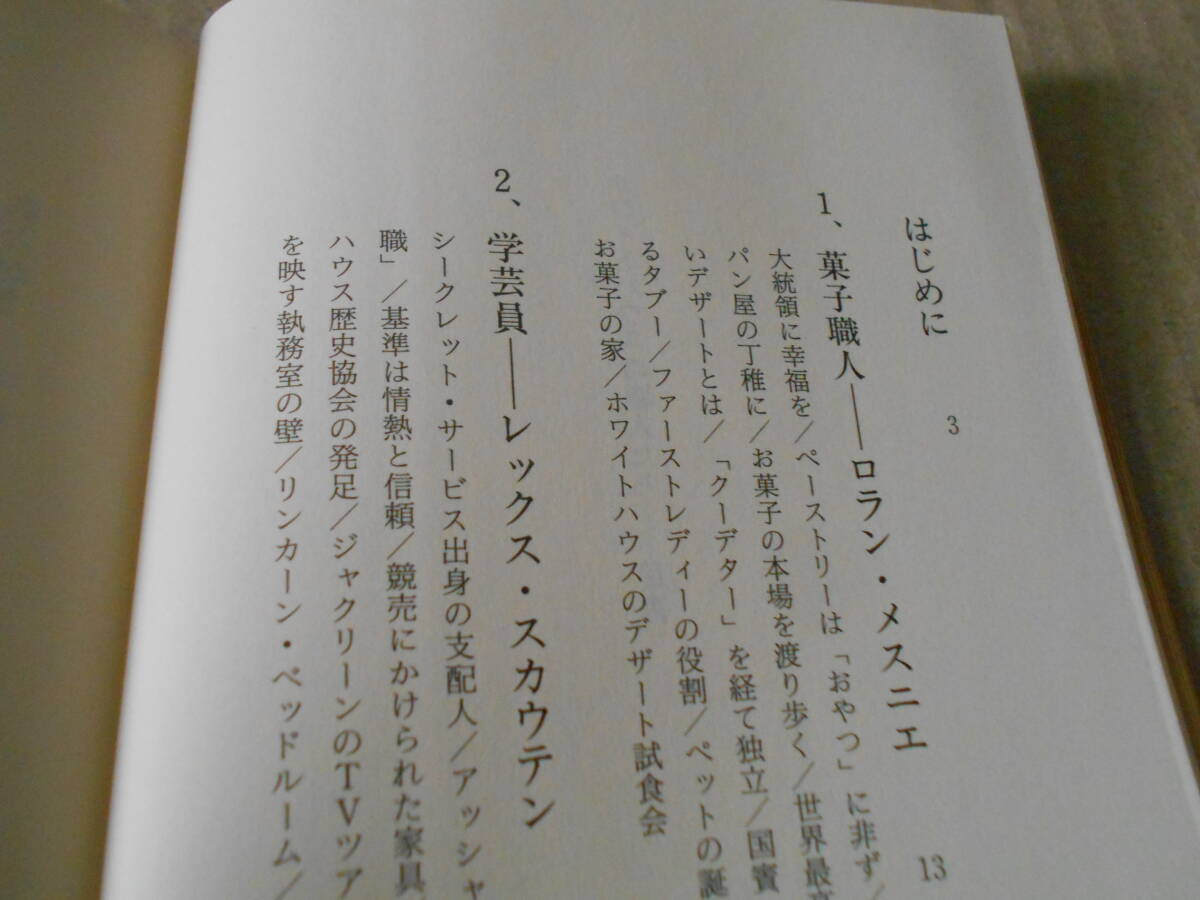 はじめに 3
1、菓子職人――ロラン・メスニエ 13
大統領に幸福を/ペーストリーは「おやつ」に非ず/
パン屋の丁稚に/お菓子の本場を渡り歩く/世界最高
いデザートとは/「クーデター」を経て独立/国賓
るタブー/ファーストレディーの役割/ペットの誕
お菓子の家/ホワイトハウスのデザート試食会
2、学芸員――レックス・スカウテン
シークレット・サービス出身の支配人/アッシャ
職」/基準は情熱と信頼/競売にかけられた家具
ハウス歴史協会の発足/ジャクリーンのTVツア
を映す執務室の壁/リンカーン・ベッドルーム/